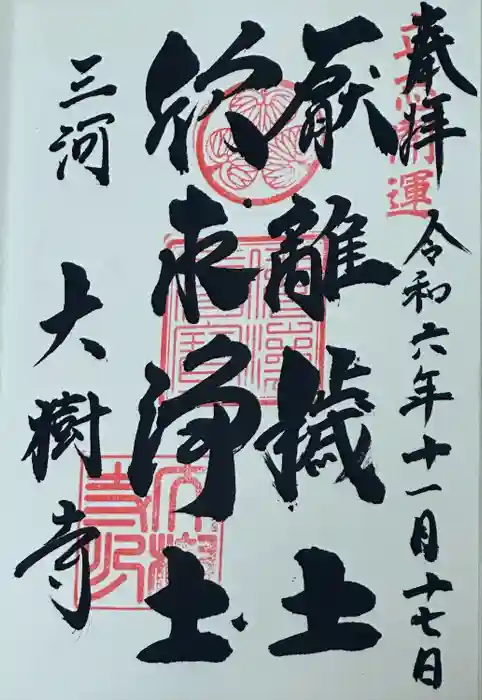 奉拝
令和六年十一月十七日
厭離穢土
欣求浄土
三河
大樹寺
開運